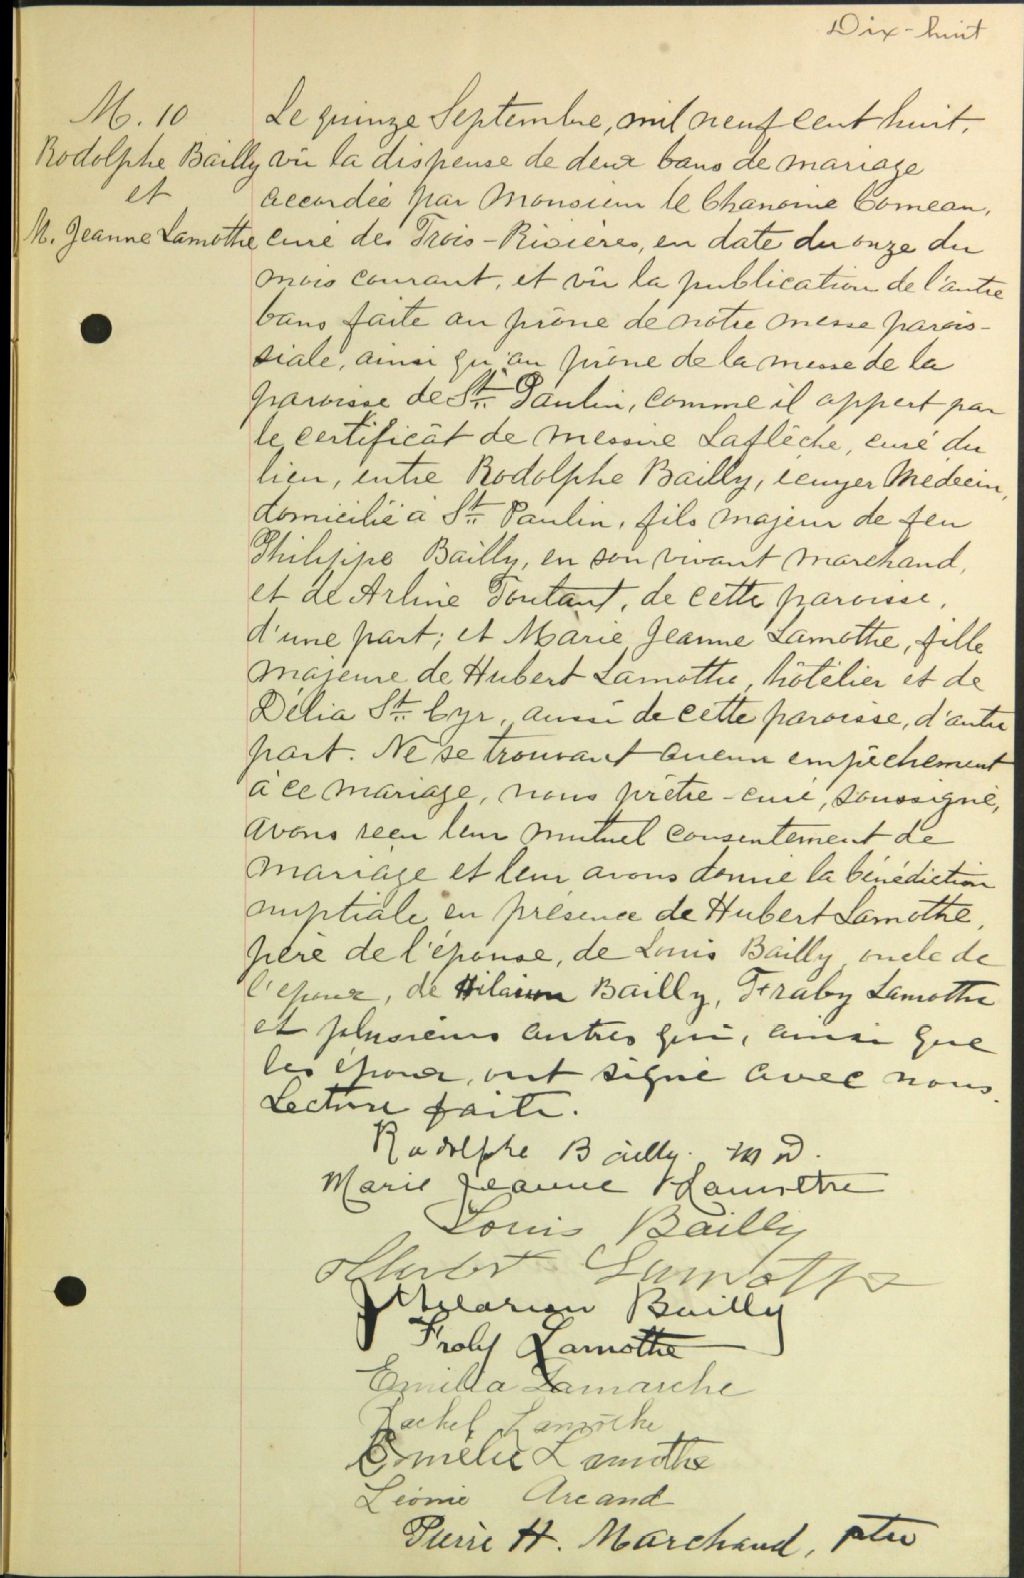 Dix-huit
M. 10
Rodolphe Bailly
et
M. Jeanne Lamothe
Le quinze Septembre, mil neuf cent huit,
vû la dispense de deux bans de mariage
accordée par Monsieur le Chanoine Comeau,
curé des Trois-Rivières, en date du onze du
mois courant, et vû la publication de l'autre
bans faite au prône de notre messe parois-
siale, ainsi qu'au prône de la messe de la
paroisse de St Paulin, comme il appert par
le certificât de messire Laflèche, curé du
lieu, entre Rodolphe Bailly, écuyer Médecin,
domicilié à St Paulin, fils majeur de feu
Philippe Bailly, en son vivant marchand,
et de Arline Toutant, de cette paroisse,
d'une part; et Marie Jeanne Lamothe, fille
majeure de Hubert Lamothe, hôtélier et de
Délia St Cyr, aussi de cette paroisse, d'autre
part. Ne se trouvant aucun empêchement
à ce mariage, nous prêtre-curé, soussigné,
avons reçu leur mutuel consentement de
mariage et leur avons donné la bénédiction
nuptiale en présence de Hubert Lamothe,
père de l'épouse, de Louis Bailly, oncle de
l'époux, de Hilarion Bailly, Fraby Lamothe
et plusieurs autres qui, ainsi que
les époux, ont signé avec nous.
Lecture faite.
Rodolphe Bailly. M D.
Marie Jeanne Lamothe
Louis Bailly
Hubert Lamothe
J Hilarion Bailly
Froby Lamothe
Emilia Lamarche
Rachel Lamothe
Emélie Lamothe
Léonie Arcand
Pierre H. Marchand, ptre